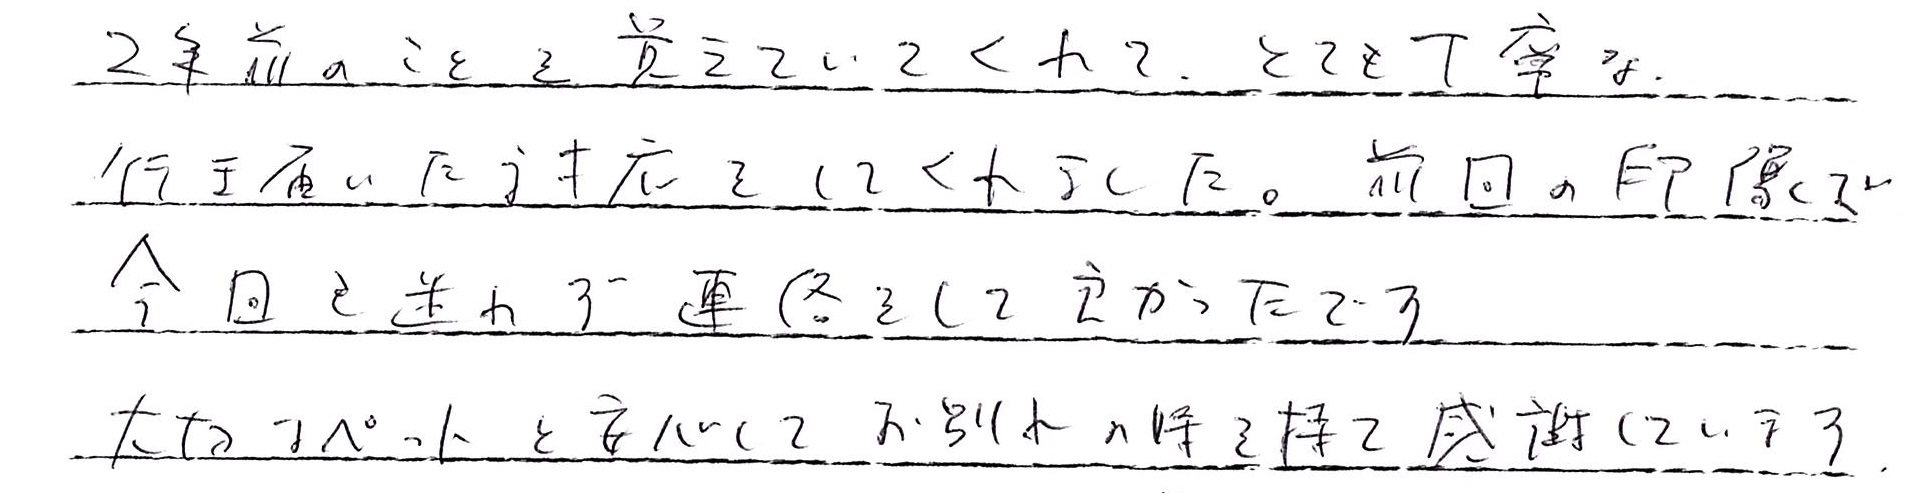 2年前のことを覚えていてくれて、とても丁寧な、
行き届いた対応をしてくれました。前回の印象して
今回も迷わず連絡をして良かったです
大切なペットと安心してお別れの時を持て感謝しています。